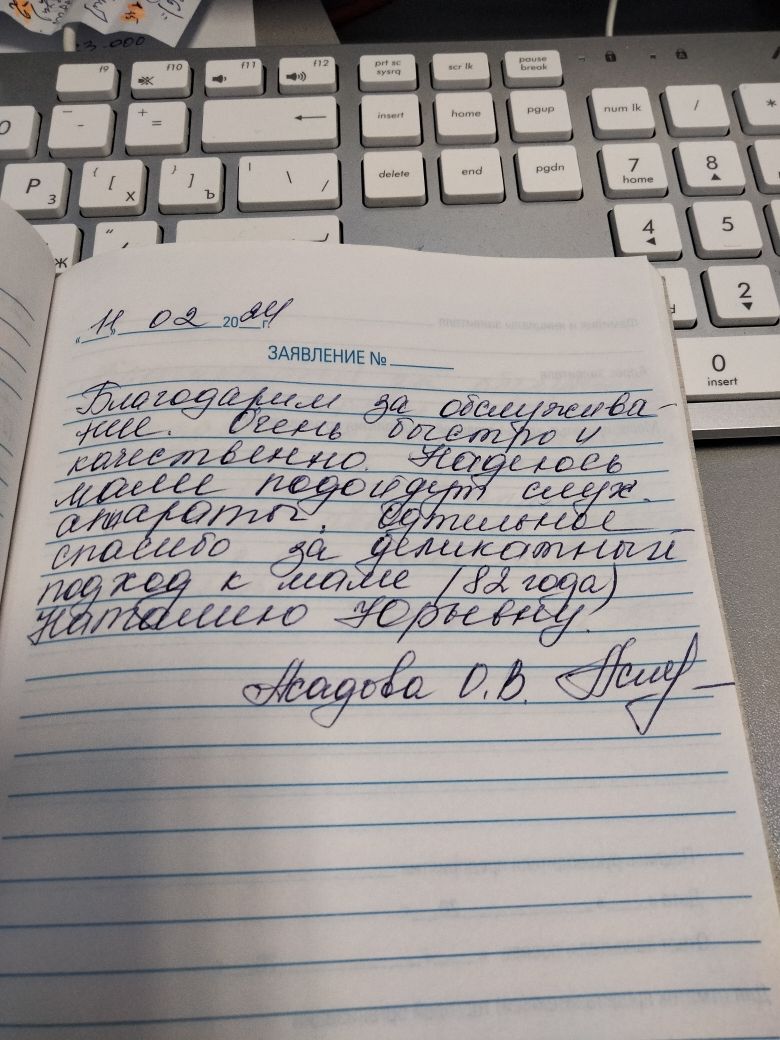 3.000
f9 f10 f11 f12 prt sc sysrq scr lk pause break
- + = insert home pgup num lk / *
P З { [ Х } ] Ъ | \ / delete end pgdn 7 home 8
Ж " 4 5
2
0 insert
„11" 02 2024 г.
ЗАЯВЛЕНИЕ №
Благодарим за обслужива-
ние. Очень быстро и
качественно. Надеюсь
маме подойдут слух.
аппараты. Отдельное
спасибо за деликатный
подход к маме (82 года)
Наталию Юрьевну.
Жадова О.В.